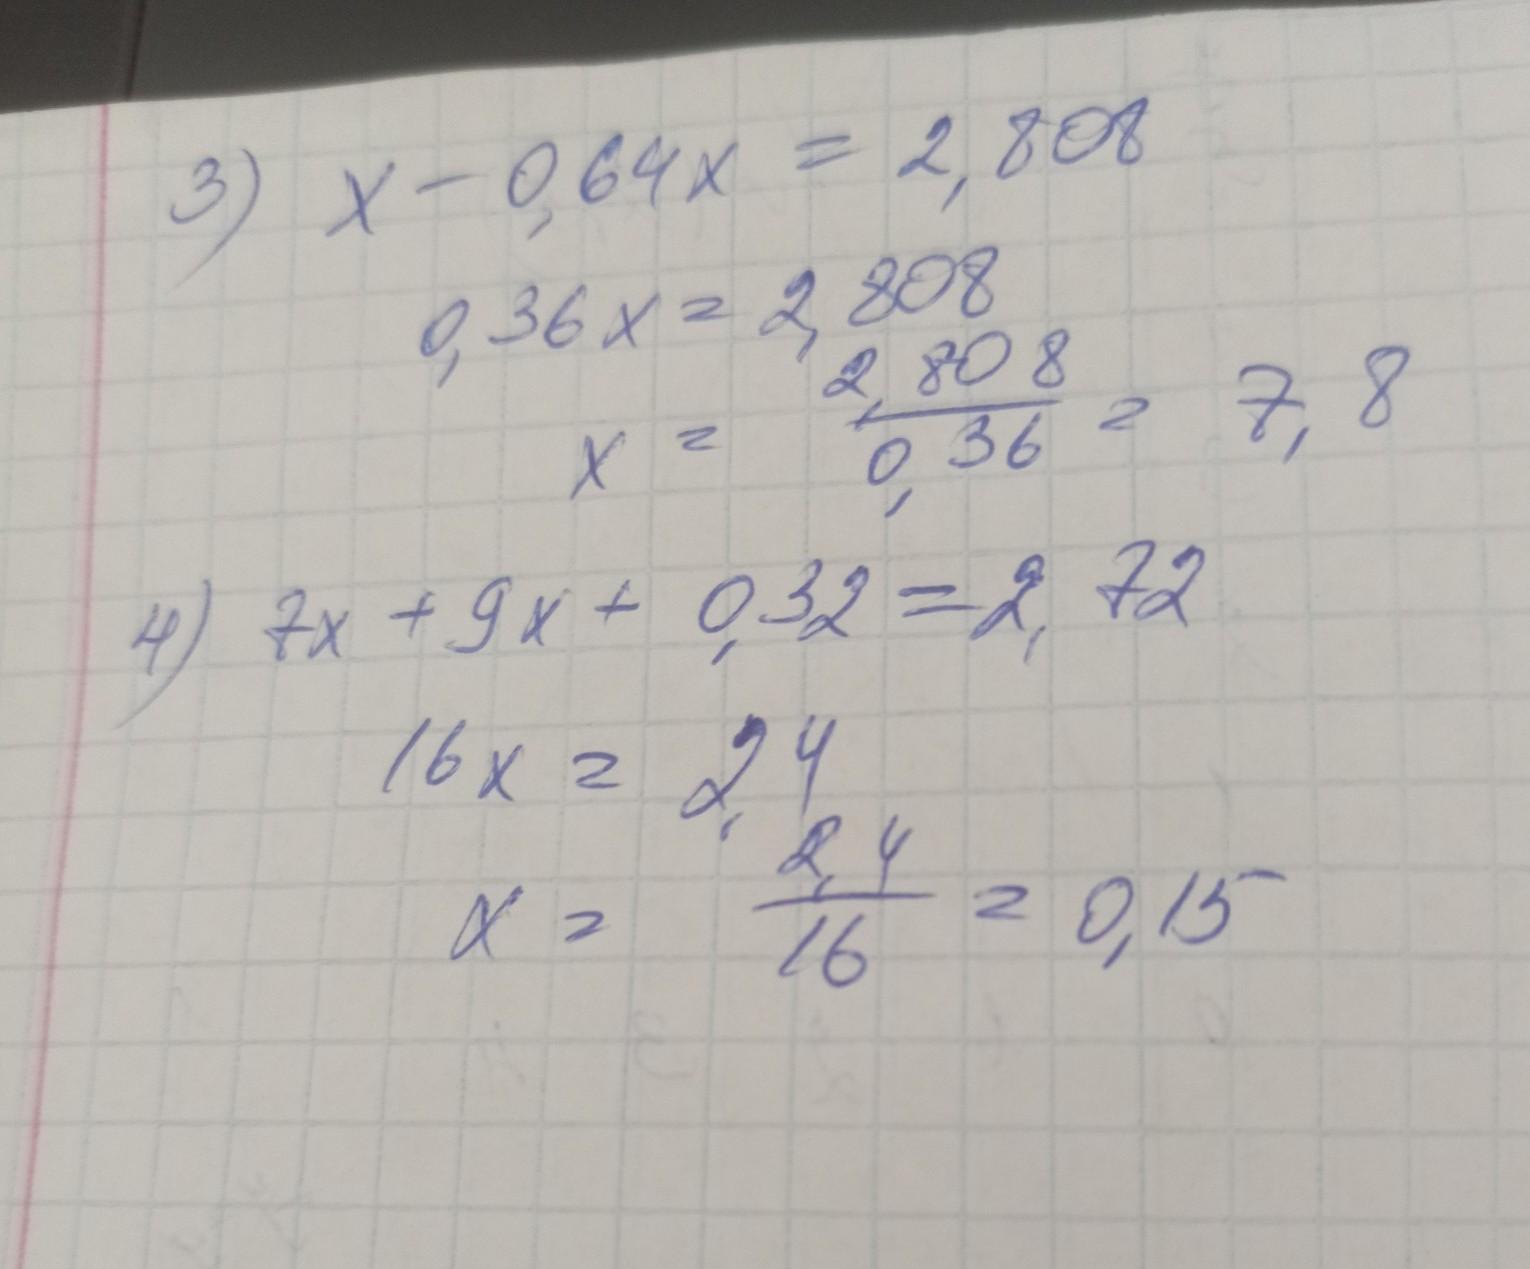 3) x - 0,64x = 2,808
0,36x = 2,808
x = 2,808/0,36 = 7,8
4) 7x + 9x + 0,32 = 2,72
16x = 2,4
x = 2,4/16 = 0,15